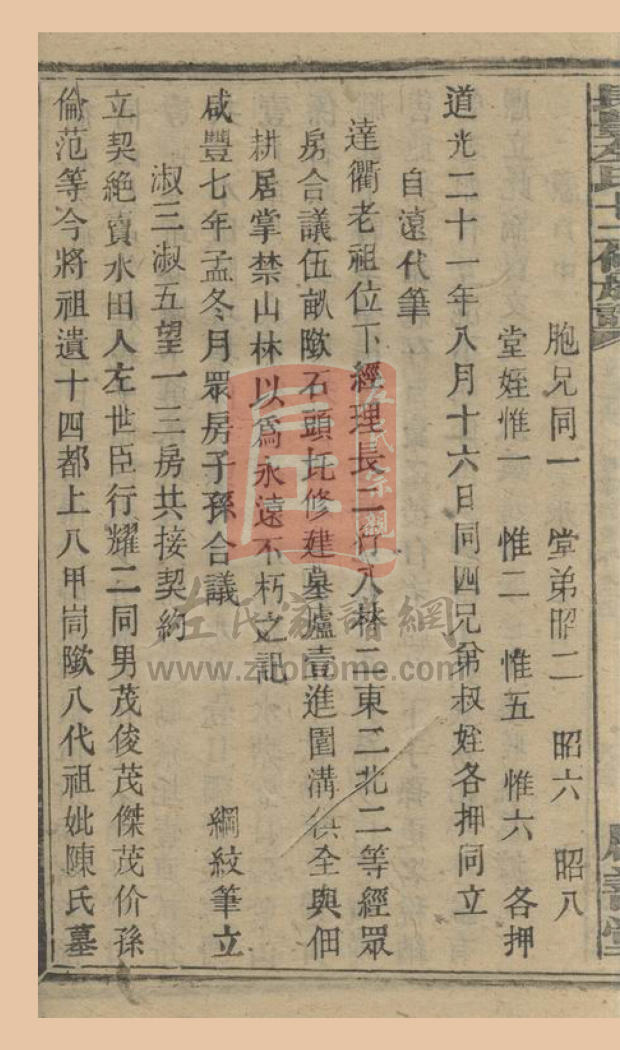 胞兄同一 堂弟昭二 昭六 昭八
堂姪惟一 惟二 惟五 惟六 各押
道光二十一年八月十六日同四兄弟叔姪各押同立
自遠代筆
達衢老祖位下經理長二行八林二東三北二等經眾
房合議伍畝墩石頭圫修建墓廬壹進圍溝俱全與佃
耕居掌禁山林以為永遠不朽之記
咸豐七年孟冬月眾房子孫合議 綱紋筆立
淑三淑五望一三房共接契約
立契絶賣水田人左世臣行耀二同男茂俊茂傑茂价孫
倫范等今將祖遺十四都上八甲峝墩八代祖妣陳氏墓
左氏家譜網
www.zuohome.com